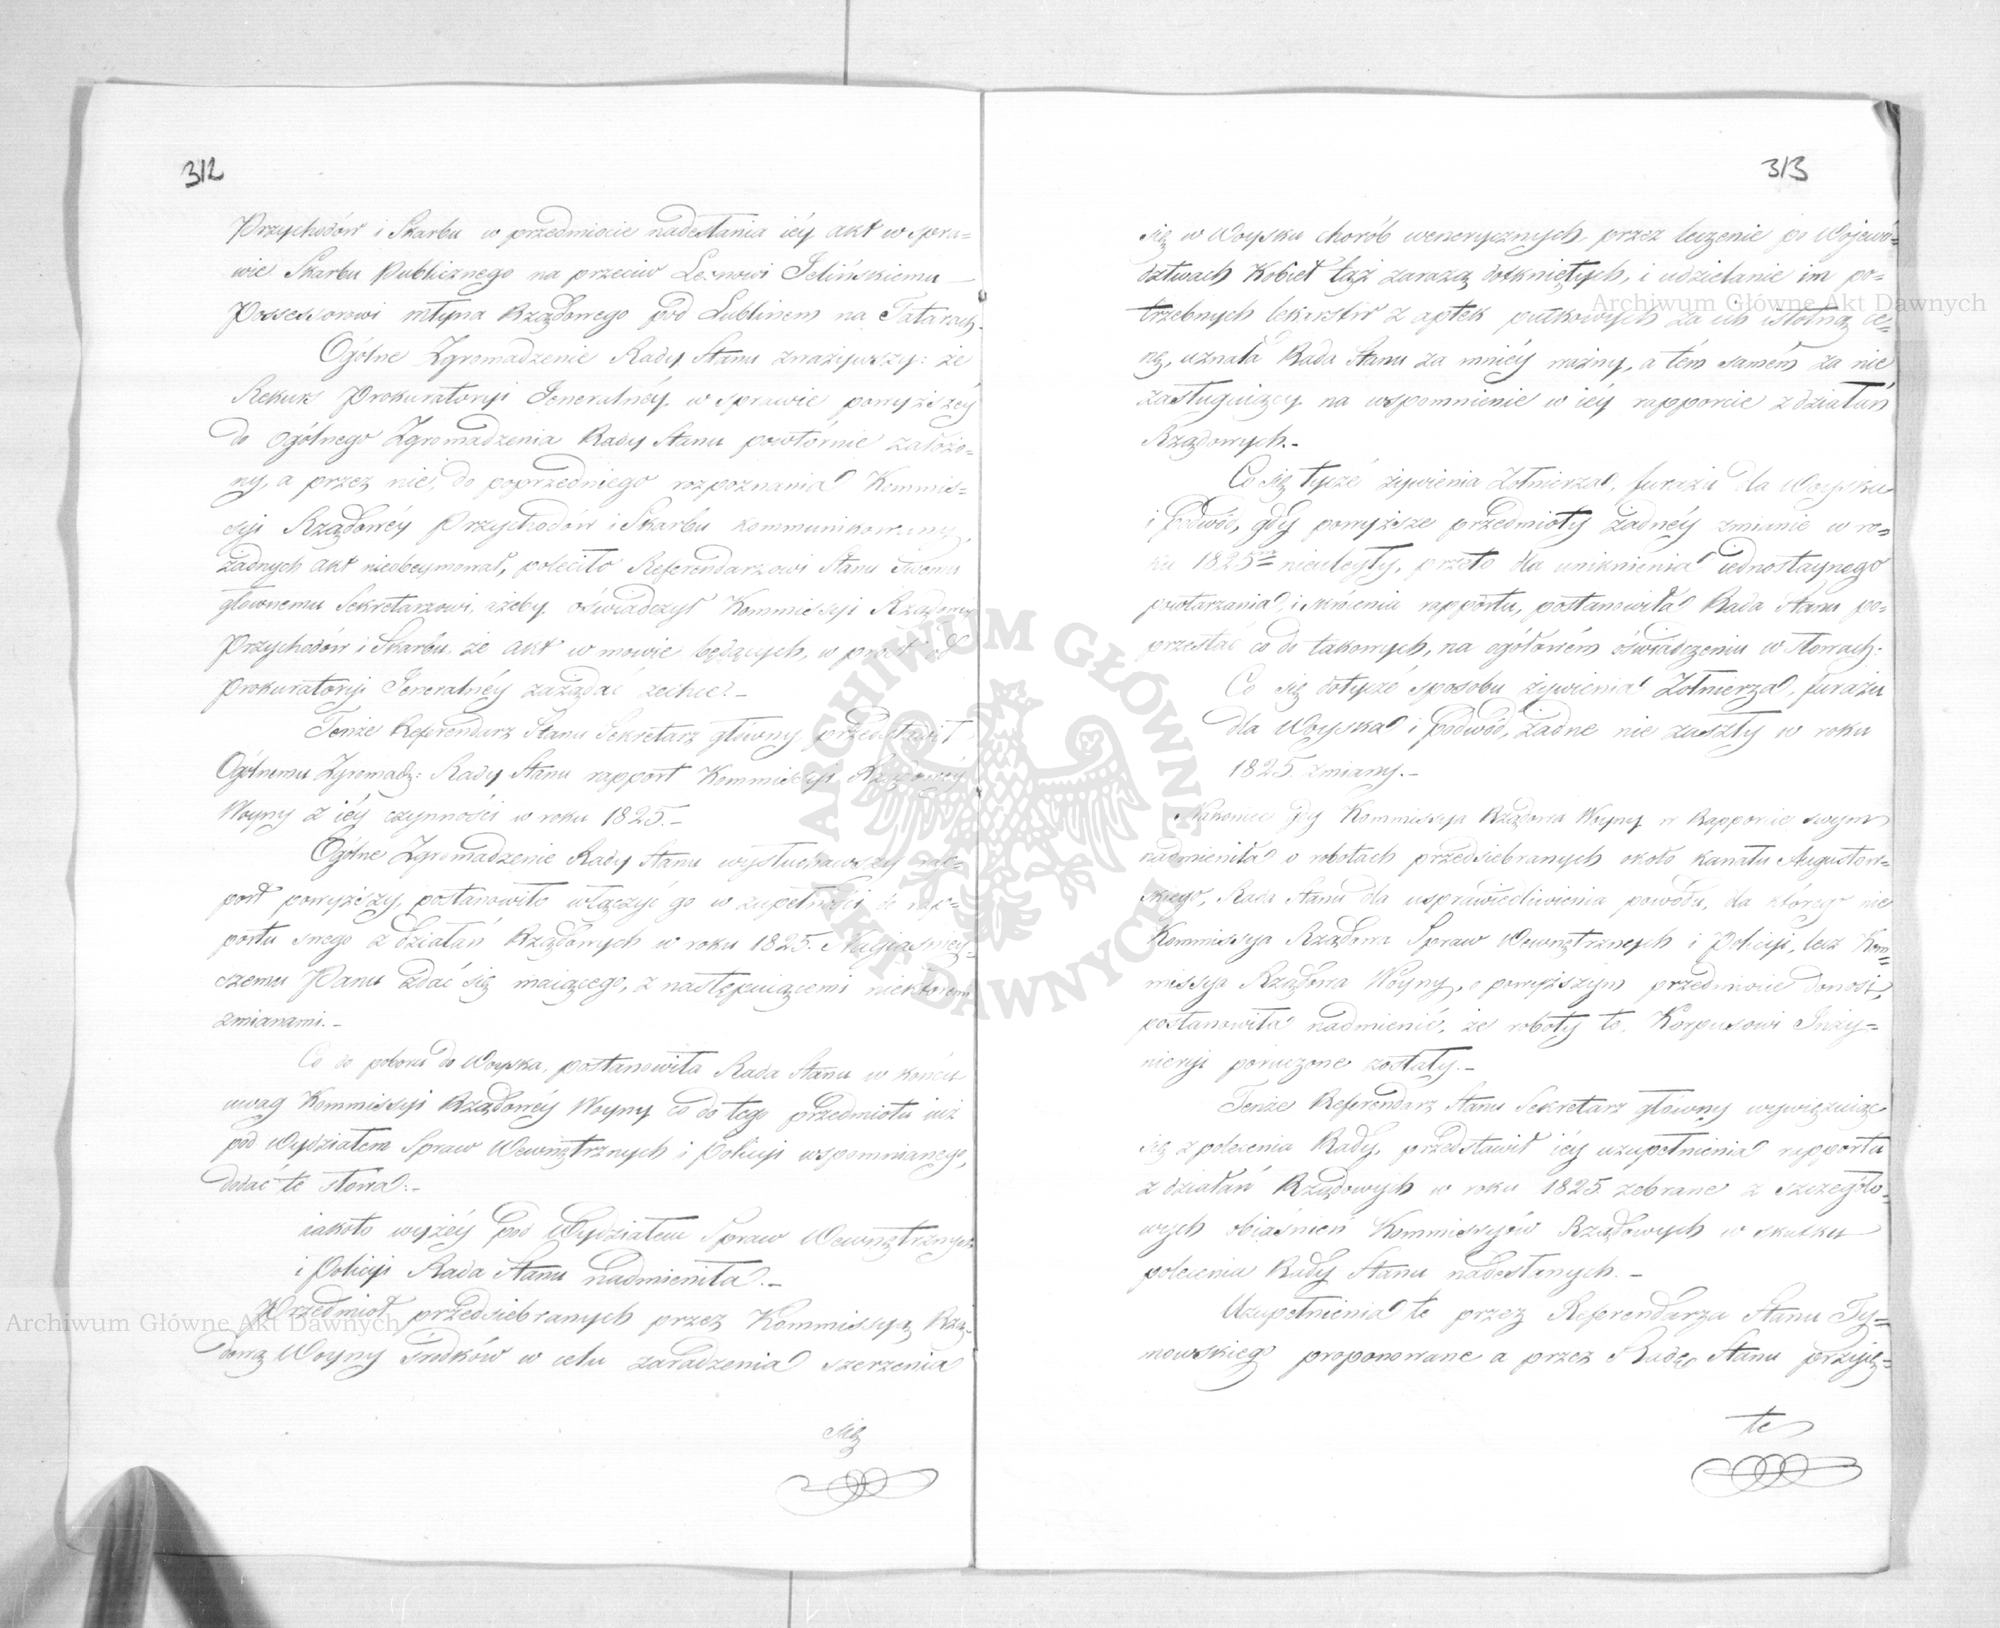 312
Przychodów i Skarbu w przedmiocie nadesłania iéy akt w spra-
wie Skarbu Publicznego na przeciw Jelińskiemu
Possessorowi młyna Rządowego pod Lublinem na Tatarach.
Ogólne Zgromadzenie Rady Stanu zważywszy: że
Rekurs Prokuratoryi Jeneralnéy w sprawie powyższéy
do Ogólnego Zgromadzenia Rady Stanu powtórnie założo-
ny, a przez nie, do poprzedniego rozpoznania Kommis-
syi Rządowéy Przychodów i Skarbu kommunikowany,
żadnych akt nieobeymował, poleciło Referendarzowi Stanu Swemu
głownemu Sekretarzowi, ażeby oświadczył Kommissyi Rządowéy
Przychodów i Skarbu, że akt w mowie będących, w prost od
Prokuratoryi Jeneralnéy zażądać zechce.-
Tenże Referendarz Stanu Sekretarz główny przedstawił
Ogólnemu Zgromadz: Rady Stanu rapport Kommissyi Rządowéy
Woyny z iéy czynności w roku 1825.-
Ogólne Zgromadzenie Rady Stanu wysłuchawszy rap-
port powyższy, postanowiło włączyć go w zupełności do rap-
portu swego z działań Rządowych w roku 1825. Nayiaśniey-
szemu Panu zdać się maiącego, z następuiącemi niektóremi
zmianami.-
Co do poboru do Woyska, postanowiła Rada Stanu w końcu
uwag Kommissyi Rządowéy Woyny co do tego przedmiotu iuż
pod Wydziałem Spraw Wewnętrznych i Policyi wspomnianego,
dodać te słowa:-
iakoto wyżéy pod Wydziałem Spraw Wewnętrznych
i Policyi Rada Stanu nadmieniła.-
Przedmiot przedsiebranych przez Kommissyą Rzą-
dową Woyny środków w celu zaradzenia szerzenia
się
313
się w Woysku chorób wenerycznych przez leczenie po Wojewó-
dztwach Kobiet tąż zarazą dotkniętych, i udzielanie im po-
trzebnych lekarstw z aptek pułkowych za ich istotną ce-
nę, uznała Rada Stanu za mniéy ważny, a tém samém za nie
zasługuiący na wspomnienie w iéy rapporcie z działań
Rządowych.-
Co się tycze żywienia Żołnierza, furażu dla Woyska
i Podwód, gdy powyższe przedmioty żadnéy zmianie w ro-
ku 1825m nieuległy, przeto dla uniknienia iednostaynego
powtarzania, i skrócenia rapportu, postanowiła Rada Stanu po-
przestać co do takowych, na ogólowém oświadczeniu w słowach:
Co się dotycze sposobu żywienia Żołnierza, furażu
dla Woyska i Podwód, żadne nie zaszły w roku
1825. zmiany.-
Nakoniec gdy Kommissya Rządowa Woyny w Rapporcie swym
nadmieniła o robotach przedsiebranych około kanału Augustow-
skiego, Rada Stanu dla usprawiedliwienia powodu, dla którego nie
Kommissya Rządowa Spraw Wewnętrznych i Policyi, lecz Kom-
missya Rządowa Woyny, o powyższym przedmiocie donosi,
postanowiła nadmienić, że roboty te, Korpusowi Inży-
nieryi poruczone zostały.-
Tenże Referendarz Stanu Sekretarz główny wywięzuiąc
się z polecenia Rady, przedstawił iéy uzupełnienia rapportu
z działań Rządowych w roku 1825. zebrane z szczegóło-
wych obiaśnień Kommissyów Rządowych w skutku
polecenia Rady Stanu nadesłanych.-
Uzupełnienia te przez Referendarza Stanu Ty-
mowskiego proponowane a przez Radę Stanu przyię-
te
ARCHIWUM GŁÓWNE AKT DAWNYCH
Archiwum Główne Akt Dawnych
Archiwum Główne Akt Dawnych